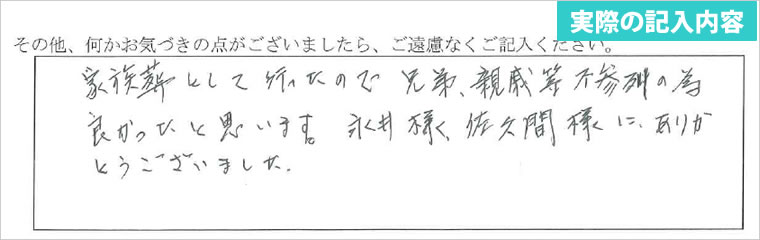 実際の記入内容
その他、何かお気づきの点がございましたら、ご遠慮なくご記入ください。
家族葬として行ったので 兄弟、親戚等不参列の為
良かったと思います。 永井様、佐久間様に、ありが
とうございました。